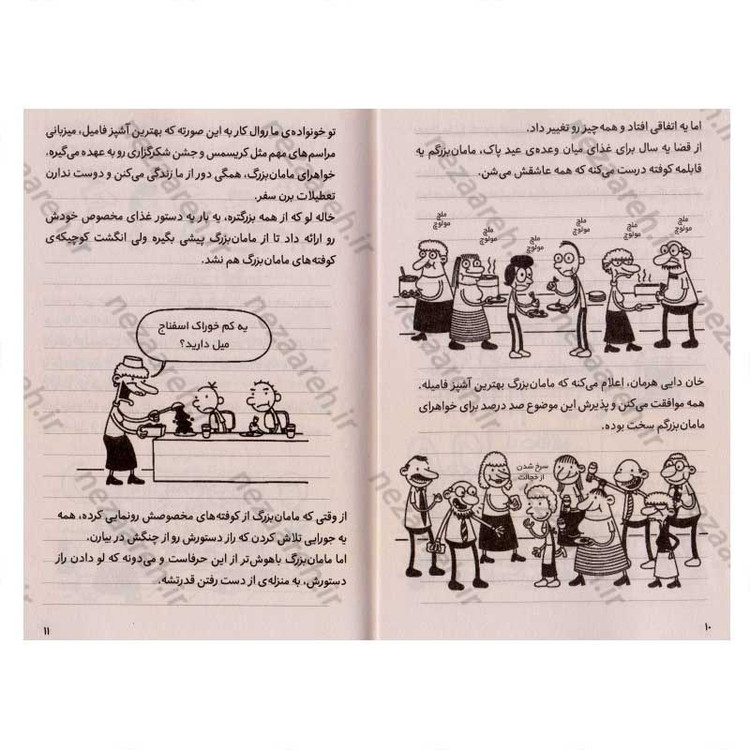 اما یه اتفاقی افتاد و همه‌چیز رو تغییر داد.
از قضا یه سال برای غذای میان وعده‌ی عید پاک، مامان‌بزرگم یه
قابلمه کوفته درست می‌کنه که همه عاشقش می‌شن.
ملچ
مولوچ
ملچ
مولوچ
ملچ
مولوچ
ملچ
مولوچ
ملچ
مولوچ
ملچ
مولوچ
خان دایی هرمان، اعلام می‌کنه که مامان‌بزرگ بهترین آشپز فامیله.
همه موافقت می‌کنن و پذیرش این موضوع صد درصد برای خواهرای
مامان‌بزرگم سخت بوده.
سرخ شدن
از خجالت
۱۰
تو خونواده‌ی ما روال کار به این صورته که بهترین آشپز فامیل، میزبانی
مراسم‌های مهم مثل کریسمس و جشن شکرگزاری رو به عهده می‌گیره.
خواهرای مامان‌بزرگ، همگی دور از ما زندگی می‌کنن و دوست ندارن
تعطیلات برن سفر.
خاله لو که از همه بزرگتره، یه بار یه دستور غذای مخصوص خودش
رو ارائه داد تا از مامان‌بزرگ پیشی بگیره ولی انگشت کوچیکه‌ی
کوفته‌های مامان‌بزرگ هم نشد.
یه کم خوراک اسفناج
میل دارید؟
از وقتی که مامان‌بزرگ از کوفته‌های مخصوصش رونمایی کرده، همه
یه جورایی تلاش کردن که راز دستورش رو از چنگش در بیارن.
اما مامان‌بزرگ باهوش‌تر از این حرفاست و می‌دونه که لو دادن راز
دستورش، به منزله‌ی از دست رفتن قدرتشه.
۱۱
nezaareh.ir